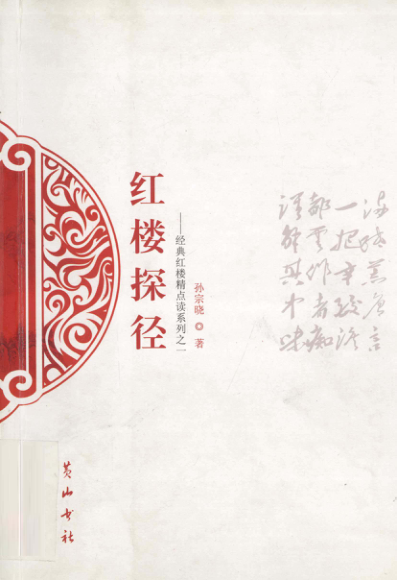 红楼探径
——经典红楼精点读系列之一
孙宗晓 著
满纸荒唐言
一把辛酸泪
都云作者痴
谁解其中味
黄山书社